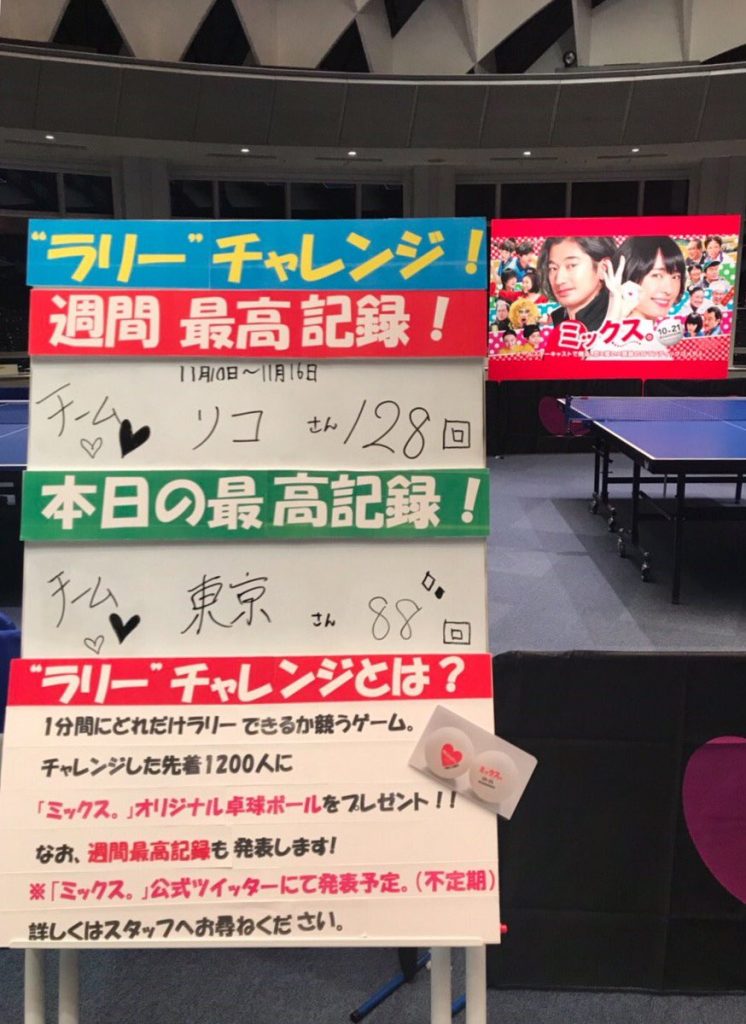 “ラリー”チャレンジ！
週間 最高記録！
11月10日〜11月16日
チーム リコ さん 128 回
本日の最高記録！
チーム 東京 さん 88 回
“ラリー”チャレンジとは？
1分間にどれだけラリーできるか競うゲーム。
チャレンジした先着1200人に
「ミックス。」オリジナル卓球ボールをプレゼント！！
なお、週間最高記録も発表します!
※「ミックス。」公式ツイッターにて発表予定。（不定期）
詳しくはスタッフへお尋ねください。
ミックス。
10.21
ミックス。